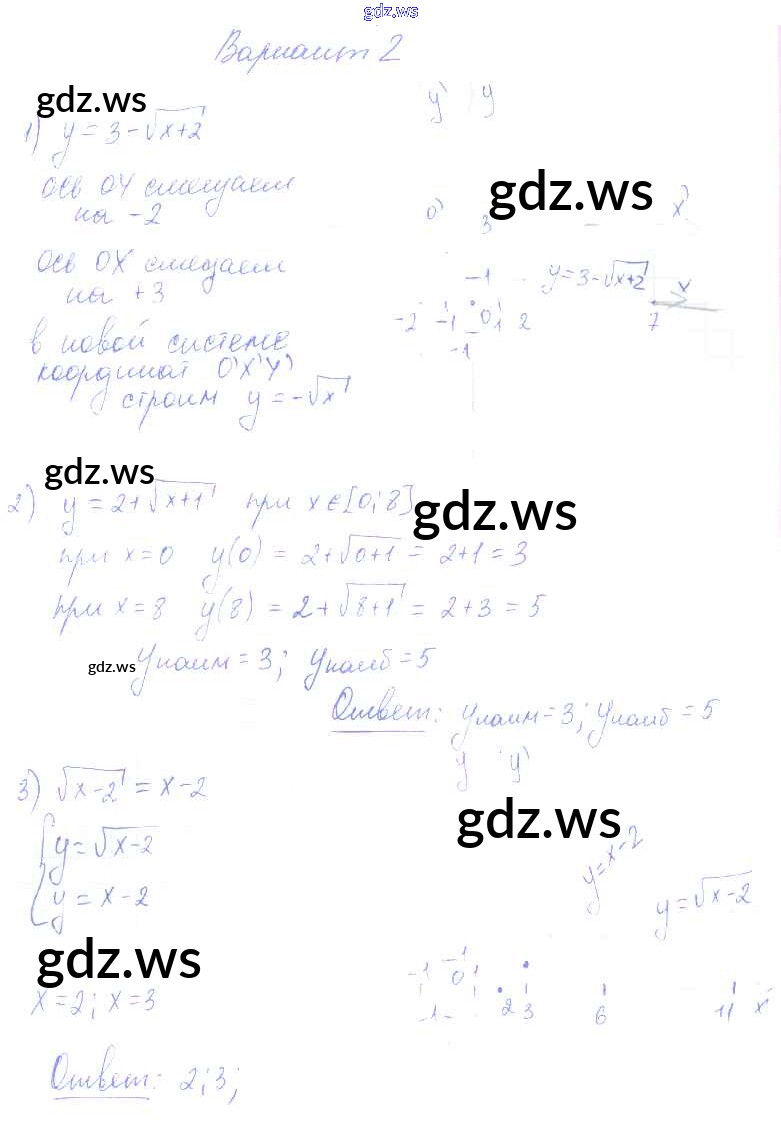 gdz.ws
Вариант 2
gdz.ws
1) y = 3 - √x+2
ось OY смещаем
на -2
ось OX смещаем
на +3
в новой системе
координат O'X'Y'
строим y = -√x
y' y
gdz.ws
0' 3 x'
-1 y = 3 - √x+2
x
-2 -1 0 1 2 7
-1
gdz.ws
2) y = 2 + √x+1 при x ∈ [0; 8]
gdz.ws
при x = 0 y(0) = 2 + √0+1 = 2+1 = 3
при x = 8 y(8) = 2 + √8+1 = 2+3 = 5
gdz.ws
yнаим = 3; yнаиб = 5
Ответ: yнаим = 3; yнаиб = 5
3) √x-2 = x-2
{ y = √x-2
y = x-2
gdz.ws
x = 2; x = 3
y y'
gdz.ws
y = x-2
y = √x-2
-1 -1 0 1
-1 2 3 6 11 x'
Ответ: 2; 3;